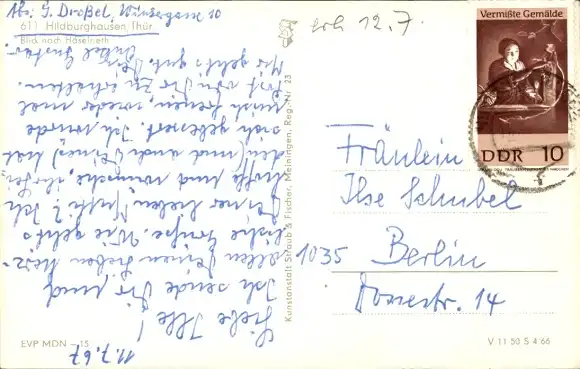 Abs: G. Draßel,
611 Hildburghausen, Thür.
Blick nach Häselrieth
11.7.67
Liebe Ilse!
Ich sende Dir und
allen Deinen lieben herz-
liche Grüße. Wie geht's
Deiner lieben Mutti? Ich
hoffe und wünsche,
(und auch Deines) hat
sich gebessert. Ich würde
mich freuen, wieder mal
Post von Dir zu erhalten.
Mir geht's gut. Dein
Onkel Gustav.
EVP MDN -.15
Kunstanstalt Straub & Fischer, Meiningen, Reg.-Nr. 23
erh 12.7.
Vermißte Gemälde
DDR 10
Fräulein
Ilse Schubel
1035 Berlin
Dossestr. 14
V 11 50 S 4 66